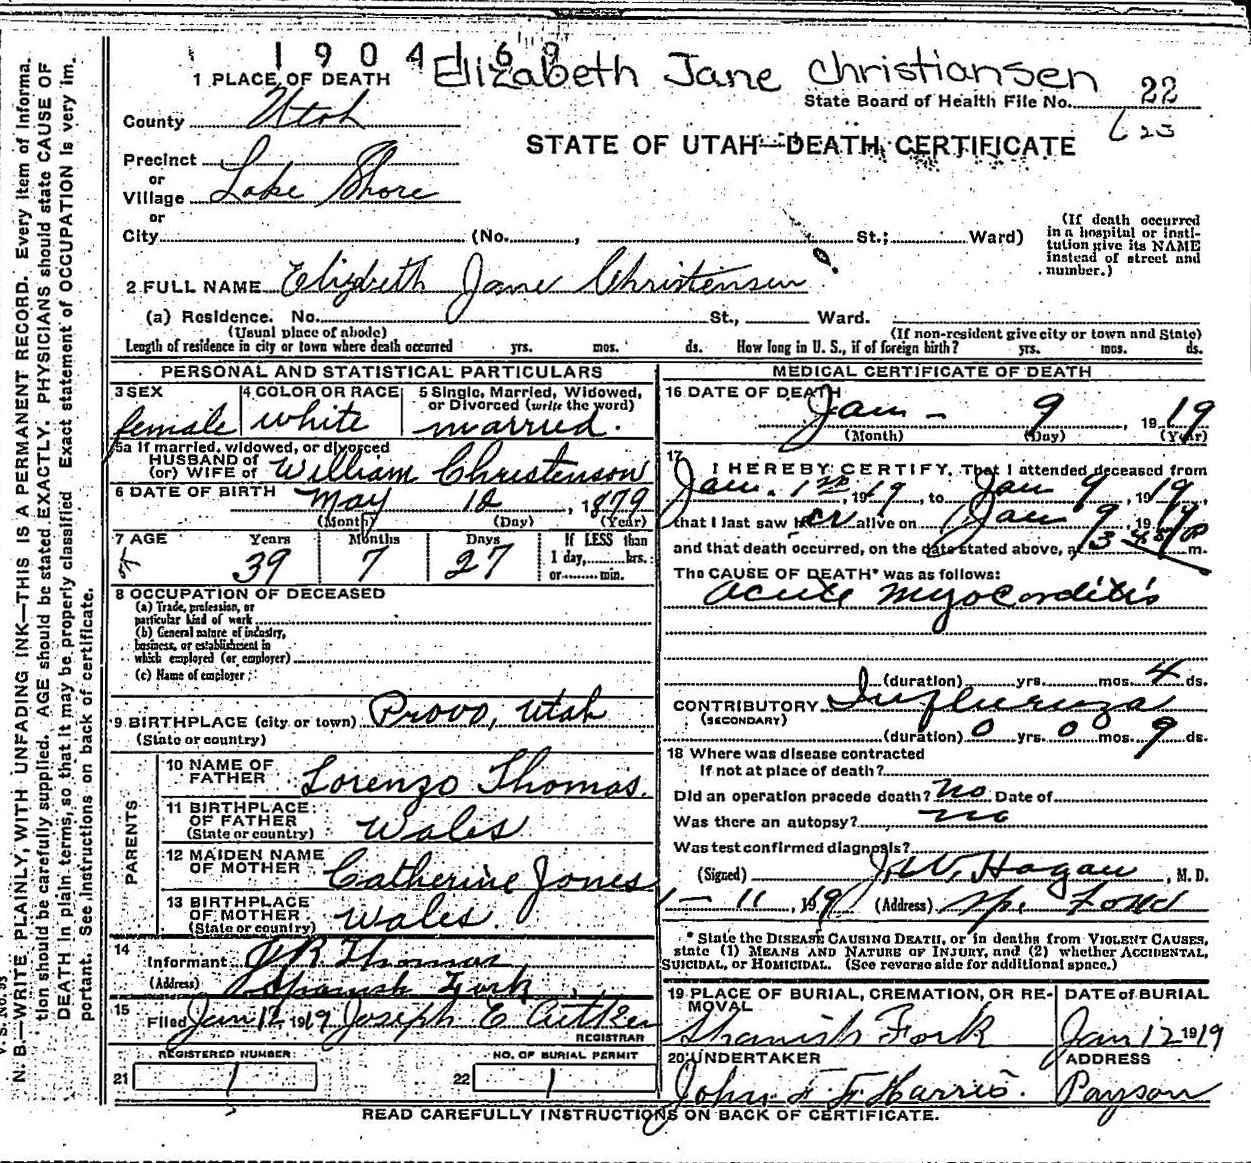 190416 9
Elizabeth Jane Christiansen
1 PLACE OF DEATH
State Board of Health File No. 22
County Utah
623
STATE OF UTAH—DEATH CERTIFICATE
Precinct
or
Village Lake Shore
or
City (No. , St.; Ward)
(If death occurred
in a hospital or insti-
tution give its NAME
instead of street and
number.)
2 FULL NAME Elizbeth Jane Christensen
(a) Residence. No. St., Ward.
(Usual place of abode) (If non-resident give city or town and State)
Length of residence in city or town where death occurred yrs. mos. ds. How long in U. S., if of foreign birth? yrs. mos. ds.
PERSONAL AND STATISTICAL PARTICULARS
3 SEX
female
4 COLOR OR RACE
white
5 Single, Married, Widowed,
or Divorced (write the word)
married.
5a If married, widowed, or divorced
HUSBAND of
(or) WIFE of William Christenson
6 DATE OF BIRTH May 12, 1879
(Month) (Day) (Year)
7 AGE Years Months Days
39 7 27
If LESS than
1 day, hrs.
or min.
8 OCCUPATION OF DECEASED
(a) Trade, profession, or
particular kind of work
(b) General nature of industry,
business, or establishment in
which employed (or employer)
(c) Name of employer
9 BIRTHPLACE (city or town) Provo, Utah
(State or country)
PARENTS
10 NAME OF
FATHER Lorenzo Thomas.
11 BIRTHPLACE
OF FATHER
(State or country) Wales
12 MAIDEN NAME
OF MOTHER Catherine Jones
13 BIRTHPLACE
OF MOTHER
(State or country) Wales.
14
Informant J R Thomas
(Address) Spanish Fork
15
Filed Jan 12 1919 Joseph E Aitken
REGISTRAR
REGISTERED NUMBER
21 1
NO. OF BURIAL PERMIT
22 1
MEDICAL CERTIFICATE OF DEATH
16 DATE OF DEATH
Jan - 9 1919
(Month) (Day) (Year)
17
I HEREBY CERTIFY, That I attended deceased from
Jan. 1st, 1919, to Jan 9, 1919,
that I last saw her alive on Jan 9, 1919
and that death occurred, on the date stated above, at m.
The CAUSE OF DEATH* was as follows:
Acute Myocorditis
(duration) yrs. mos. 4 ds.
CONTRIBUTORY Influenza
(SECONDARY)
(duration) 0 yrs. 0 mos. 9 ds.
18 Where was disease contracted
If not at place of death?
Did an operation precede death? No Date of
Was there an autopsy? no
Was test confirmed diagnosis?
(Signed) J. W. Hagan, M. D.
1-11, 1919 (Address) Sp. Fork
* State the DISEASE CAUSING DEATH, or in deaths from VIOLENT CAUSES,
state (1) MEANS AND NATURE OF INJURY, and (2) whether ACCIDENTAL,
SUICIDAL, or HOMICIDAL. (See reverse side for additional space.)
19 PLACE OF BURIAL, CREMATION, OR RE-
MOVAL
Spanish Fork
DATE of BURIAL
Jan 12 1919
20 UNDERTAKER
John F. F. Harris.
ADDRESS
Payson
READ CAREFULLY INSTRUCTIONS ON BACK OF CERTIFICATE.
V. S. No. 95
N. B.—WRITE PLAINLY, WITH UNFADING INK—THIS IS A PERMANENT RECORD. Every item of informa-
tion should be carefully supplied. AGE should be stated EXACTLY. PHYSICIANS should state CAUSE OF
DEATH in plain terms, so that it may be properly classified. Exact statement of OCCUPATION is very im-
portant. See instructions on back of certificate.